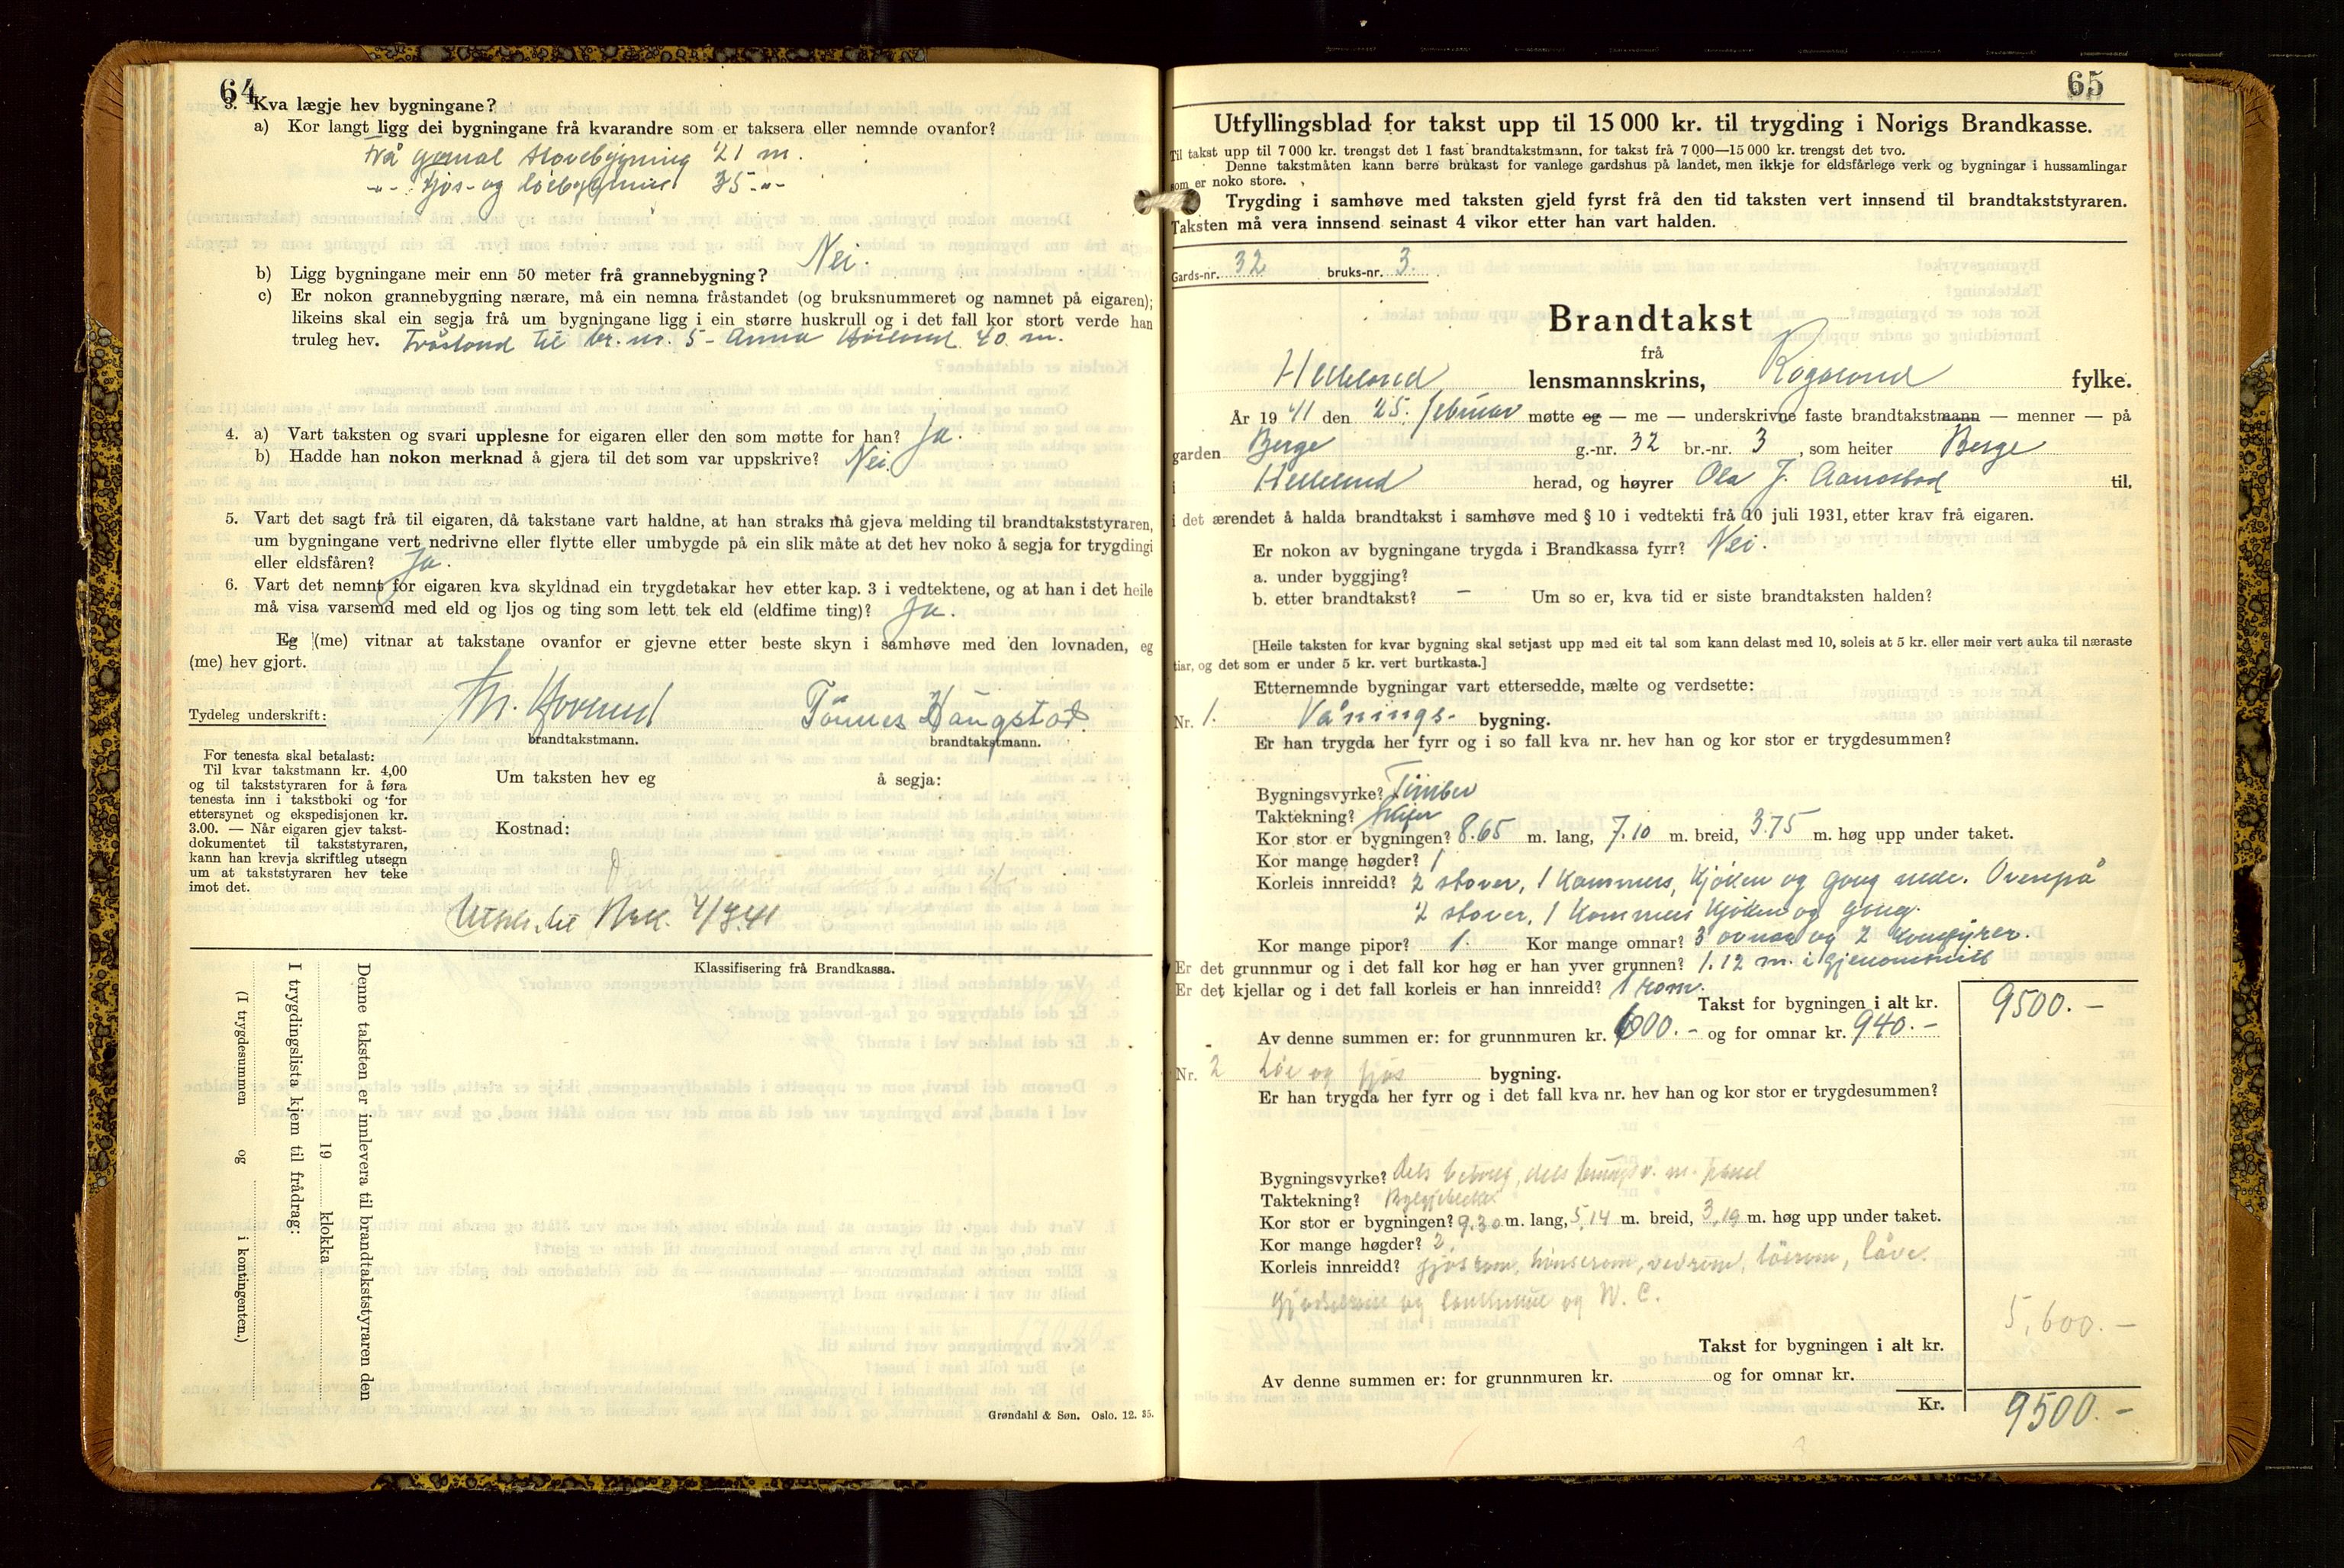 64
3. Kva lægje hev bygningane?
a) Kor langt ligg dei bygningane frå kvarandre som er taksera eller nemnde ovanfor?
Frå gamal stovebygning 21 m.
-"- fjøs- og løebygning 35 -"-
b) Ligg bygningane meir enn 50 meter frå grannebygning? Nei.
c) Er nokon grannebygning nærare, må ein nemna fråstandet (og bruksnummeret og namnet på eigaren);
likeins skal ein segja frå um bygningane ligg i ein større huskrull og i det fall kor stort verde han
truleg hev. Fråstand til br. nr. 5 - Anna 40 m.
4. a) Vart taksten og svari upplesne for eigaren eller den som møtte for han? Ja.
b) Hadde han nokon merknad å gjera til det som var uppskrive? Nei.
5. Vart det sagt frå til eigaren, då takstane vart haldne, at han straks må gjeva melding til brandtakststyraren,
um bygningane vert nedrivne eller flytte eller umbygde på ein slik måte at det hev noko å segja for trygdingi
eller eldsfåren? Ja.
6. Vart det nemnt for eigaren kva skyldnad ein trygdetakar hev etter kap. 3 i vedtektene, og at han i det heile
må visa varsemd med eld og ljos og ting som lett tek eld (eldfime ting)? Ja.
Eg (me) vitnar at takstane ovanfor er gjevne etter beste skyn i samhøve med den lovnaden, eg
(me) hev gjort.
Tydeleg underskrift: Tønnes Haugstad.
brandtakstmann. brandtakstmann.
For tenesta skal betalast:
Til kvar takstmann kr. 4,00
og til takststyraren for å føra
tenesta inn i takstboki og for
ettersynet og ekspedisjonen kr.
3.00. — Når eigaren gjev takst-
dokumentet til takststyraren,
kann han krevja skriftleg utsegn
um at takststyraren hev teke
imot det.
Um taksten hev eg å segja:
Kostnad:
4/3.41
Klassifisering frå Brandkassa.
Denne taksten er innlevera til brandtakststyraren den
19 klokka
I trygdingslista kjem til frådrag:
(I trygdesummen og i kontingenten.)
Grøndahl & Søn. Oslo. 12. 35.
65
Utfyllingsblad for takst upp til 15 000 kr. til trygding i Norigs Brandkasse.
Til takst upp til 7 000 kr. trengst det 1 fast brandtakstmann, for takst frå 7 000—15 000 kr. trengst det tvo.
Denne takstmåten kann berre brukast for vanlege gardshus på landet, men ikkje for eldsfårlege verk og bygningar i hussamlingar
som er noko store.
Trygding i samhøve med taksten gjeld fyrst frå den tid taksten vert innsend til brandtakststyraren.
Taksten må vera innsend seinast 4 vikor etter han vart halden.
Gards-nr. 32 bruks-nr. 3.
Brandtakst
frå
Helleland lensmannskrins, Rogaland fylke.
År 1941 den 25. februar møtte eg — me — underskrivne faste brandtakstmann — menner — på
garden Berge g.-nr. 32 br.-nr. 3, som heiter Berge
i Helleland herad, og høyrer Ola J. til,
i det ærendet å halda brandtakst i samhøve med § 10 i vedtekti frå 10 juli 1931, etter krav frå eigaren.
Er nokon av bygningane trygda i Brandkassa fyrr? Nei.
a. under byggjing?
b. etter brandtakst? - Um so er, kva tid er siste brandtaksten halden?
[Heile taksten for kvar bygning skal setjast upp med eit tal som kann delast med 10, soleis at 5 kr. eller meir vert auka til næraste
tiar, og det som er under 5 kr. vert burtkasta.]
Etternemnde bygningar vart ettersedde, mælte og verdsette:
Nr. 1. Vånings- bygning.
Er han trygda her fyrr og i so fall kva nr. hev han og kor stor er trygdesummen?
Bygningsvyrke? Timber
Taktekning? Skifer
Kor stor er bygningen? 8.65 m. lang, 7.10 m. breid, 3.75 m. høg upp under taket.
Kor mange høgder? 1
Korleis innreidd? 2 stover, 1 kammers, kjøken og gang nede. Ovenpå
2 stover, 1 kammers kjøken og gang.
Kor mange pipor? 1. Kor mange omnar? 3 ovnar og 2 komfyrer.
Er det grunnmur og i det fall kor høg er han yver grunnen? 1.12 m. i gjenomsnitt
Er det kjellar og i det fall korleis er han innreidd? 1 rom.
Takst for bygningen i alt kr. 9500.-
Av denne summen er: for grunnmuren kr. 600.- og for omnar kr. 940.-
Nr. 2 Løe og fjøs bygning.
Er han trygda her fyrr og i det fall kva nr. hev han og kor stor er trygdesummen?
Bygningsvyrke? Dels betong, dels bindingsv. m. panel
Taktekning? Bylgjeblekk
Kor stor er bygningen? 9.30 m. lang, 5,14 m. breid, 3,19 m. høg upp under taket.
Kor mange høgder? 2
Korleis innreidd? fjøsrom, hønserom, vedrom, løerom, låve.
og og W.C.
5,600.-
Takst for bygningen i alt kr.
Av denne summen er: for grunnmuren kr. og for omnar kr.
Kr. 9500.-